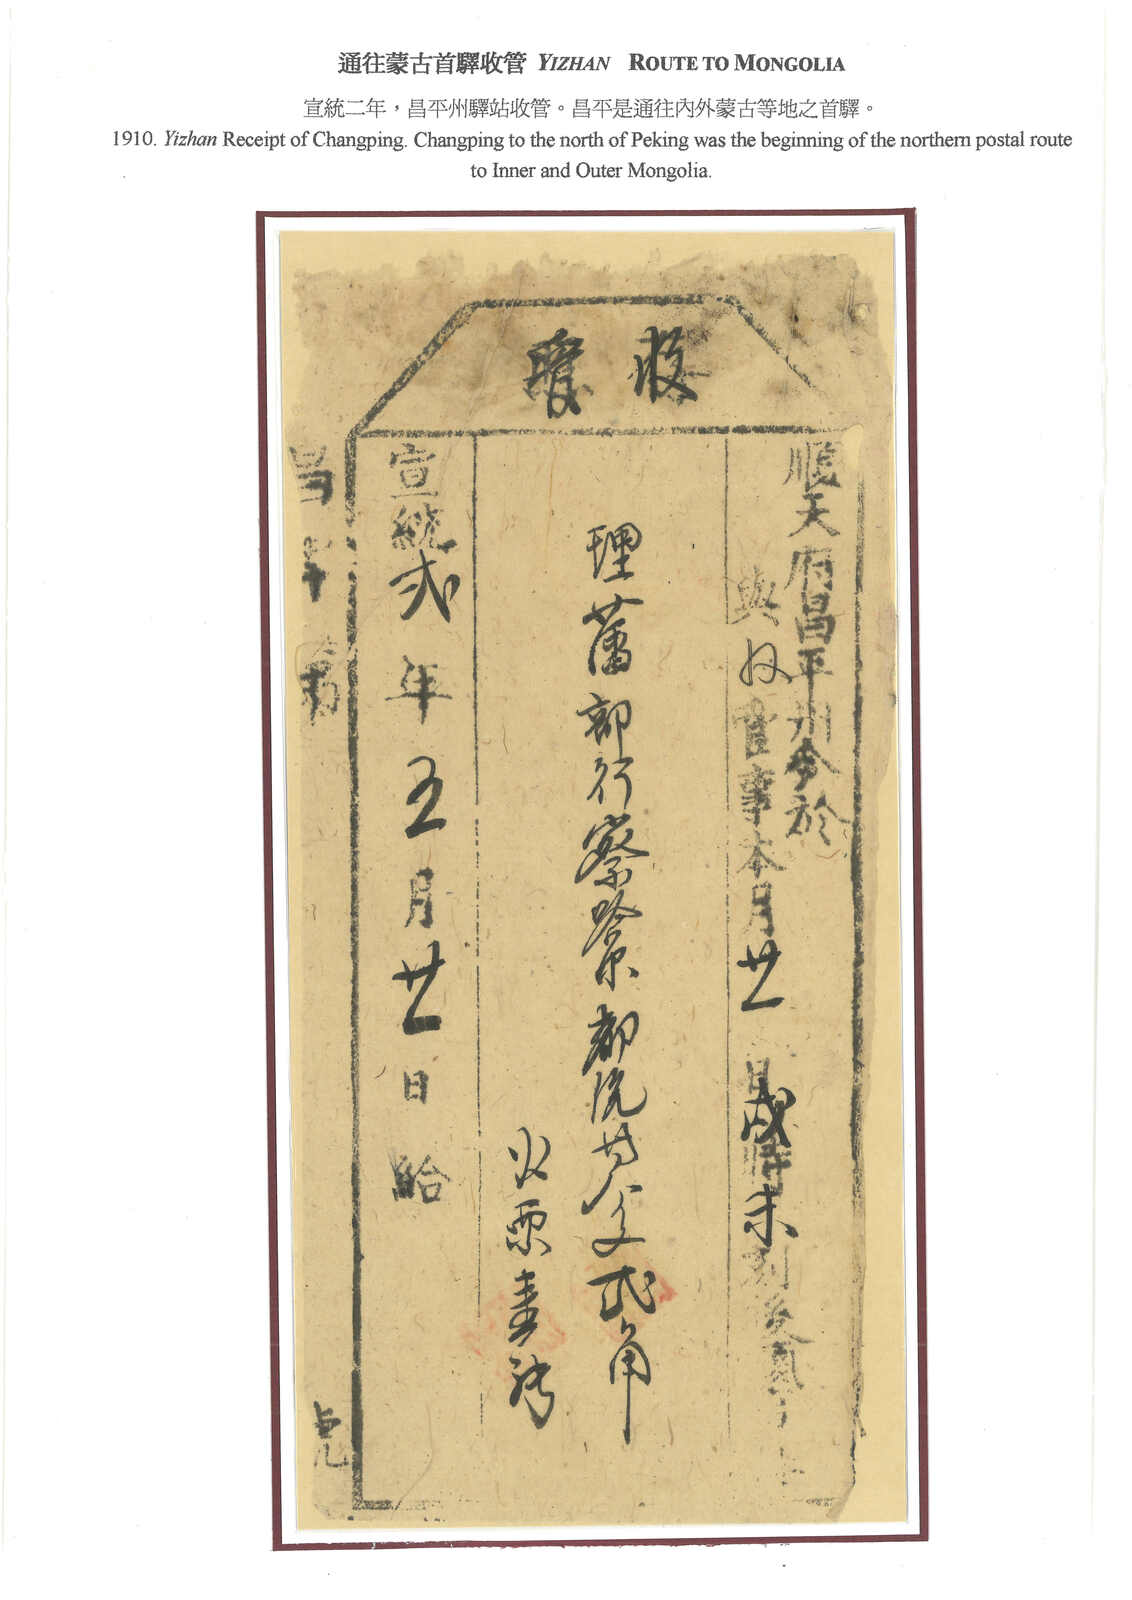 通往蒙古首驛收管 YIZHAN ROUTE TO MONGOLIA
宣統二年，昌平州驛站收管。昌平是通往內外蒙古等地之首驛。
1910. Yizhan Receipt of Changping. Changping to the north of Peking was the beginning of the northern postal route
to Inner and Outer Mongolia.
收
順天府昌平州今於
與 收管事本月廿一日戌時末刻
理藩部行察哈尔都統廿公文弍角
火票壹張
宣統弍年五月廿一日給
昌平
號